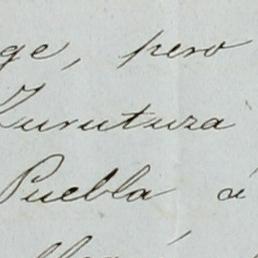 ge, pero
Zurutuza
Puebla á